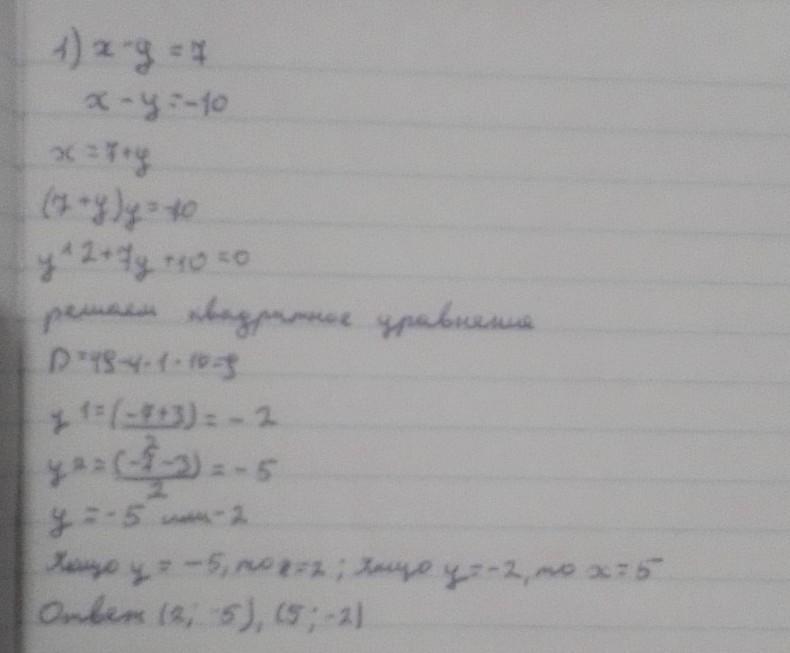 1) x - y = 7
x - y = -10
x = 7+y
(7+y)y = -10
y^2+7y+10=0
решаем квадратное уравнения
D=49-4·1·10=9
y1=(-7+3)/2=-2
y2=(-7-3)/2=-5
y=-5 или -2
Якщо y=-5, то x=2; Якщо y=-2, то x=5
Ответ (2; -5), (5; -2)